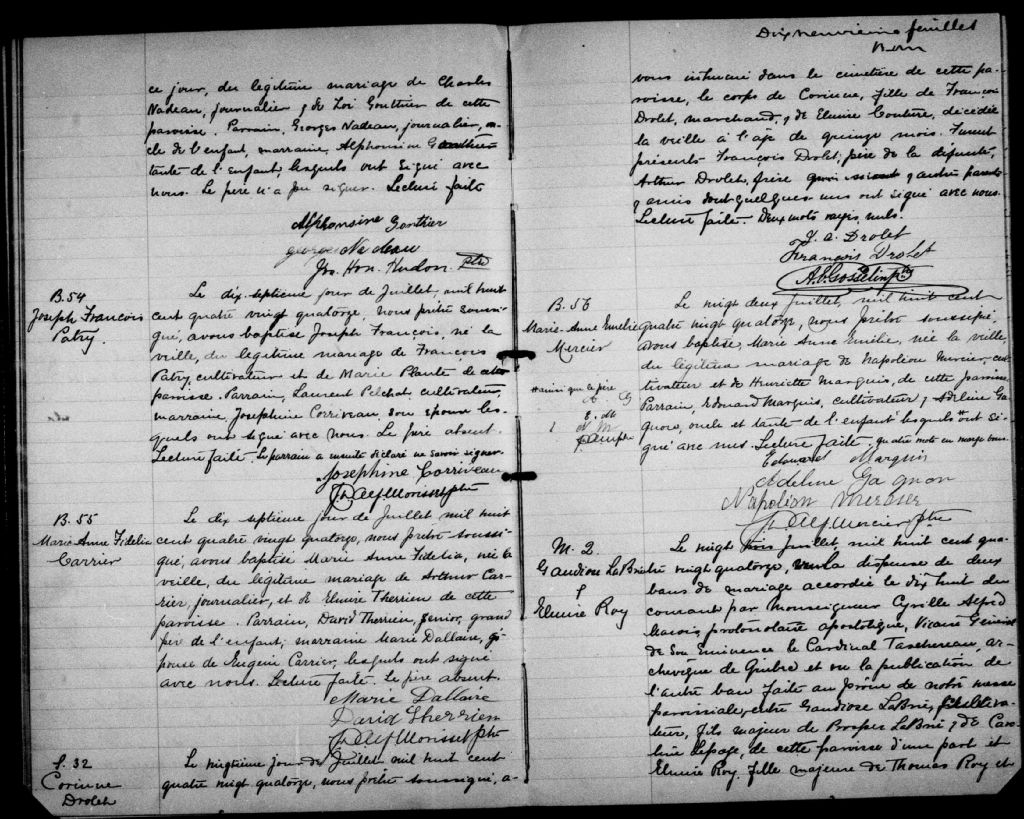 ce jour, du légitime mariage de Charles
Nadeau, journalier & de Loi Gouthier de cette
paroisse. Parrain, Georges Nadeau, journalier, on-
cle de l'enfant, marraine, Alphonsine
tante de l'enfant, lesquels ont signé avec
nous. Le père n'a pu signer. Lecture faite
Alphonsine Gontier
George Nadeau
Jos. Hon. Hudon Ptre
B. 54
Joseph François
Patry.
Le dix-septième jour de Juillet, mil huit
cent quatre vingt quatorze, nous prêtre soussi-
gné, avons baptisé Joseph François, né la
ville, du légitime mariage de François
Patry, cultivateur et de Marie Plante de cette
paroisse. Parrain, Laurent Pelchat, cultivateur,
marraine Josephine Corriveau son épouse les-
quels ont signé avec nous. Le père absent.
Lecture faite. Le parrain a ensuite déclaré ne savoir signer.
Josephine Corriveau
ptre
B. 55
Marie Anne Fidélia
Carrier
Le dix septième jour de Juillet mil huit
cent quatre vingt quatorze, nous prêtre soussi-
gné, avons baptisé Marie Anne Fidelia, née la
ville, du légitime mariage de Arthur Car-
rier, journalier, et de Elmire Therrien de cette
paroisse. Parrain, David Therrien, senior, grand
père de l'enfant, marraine Marie Dallaire, é-
pouse de Eugène Carrier, lesquels ont signé
avec nous. Lecture faite. Le père absent.
Marie Dallaire
David Therrien
ptre
S. 32
Corinne
Drolet
Le vingtième jour de Juillet mil huit cent
quatre vingt quatorze, nous prêtre soussigné, a-
Dix neuvième feuillet
vons inhumé dans le cimetière de cette pa-
roisse, le corps de Corinne, fille de François
Drolet, marchand, & de Elmire Couture, décédée
la ville à l'âge de quinze mois. Furent
présents François Drolet, père de la défunte,
Arthur Drolet, frère & autres parents
& amis dont quelques uns ont signé avec nous.
Lecture faite. Deux mots rayés nuls.
J. A. Drolet
François Drolet
A. E. Gosselin Ptre
B. 56
Marie-Anne Emélie
Mercier
Le vingt deux Juillet, mil huit cent
quatre vingt quatorze, nous prêtre soussigné,
avons baptisé, Marie Anne Emélie, née la ville,
du légitime mariage de Napoléon Mercier, cul-
tivateur et de Henriette Marquis, de cette paroisse,
Parrain, Edouard Marquis, cultivateur, & Adeline Ga-
gnon, oncle et tante de l'enfant lesquels # ont si-
gné avec nous. Lecture faite. quatre mots en marge bons.
# ainsi que le père
A. G
E. M
N M
Edouard Marquis
Adeline Gagnon
Napoleon mercier
Mercier, ptre
M. 2.
Gaudiose LaBrie
&
Elmire Roy
Le vingt trois Juillet, mil huit cent qua-
tre vingt quatorze, vu la dispense de deux
bans de mariage accordée le dix huit du
courant par Monseigneur Cyrille Alfred
Marois, protonotaire apostolique, Vicaire Général
de Son Eminence le Cardinal Taschereau, ar-
chevêque de Québec et vu la publication de
l'autre ban faite au prône de notre messe
paroissiale, entre Gaudiose LaBrie, cultiva-
teur, fils majeur de Prosper LaBrie & de Caro-
line Lepage, de cette paroisse d'une part et
Elmire Roy, fille majeure de Thomas Roy et